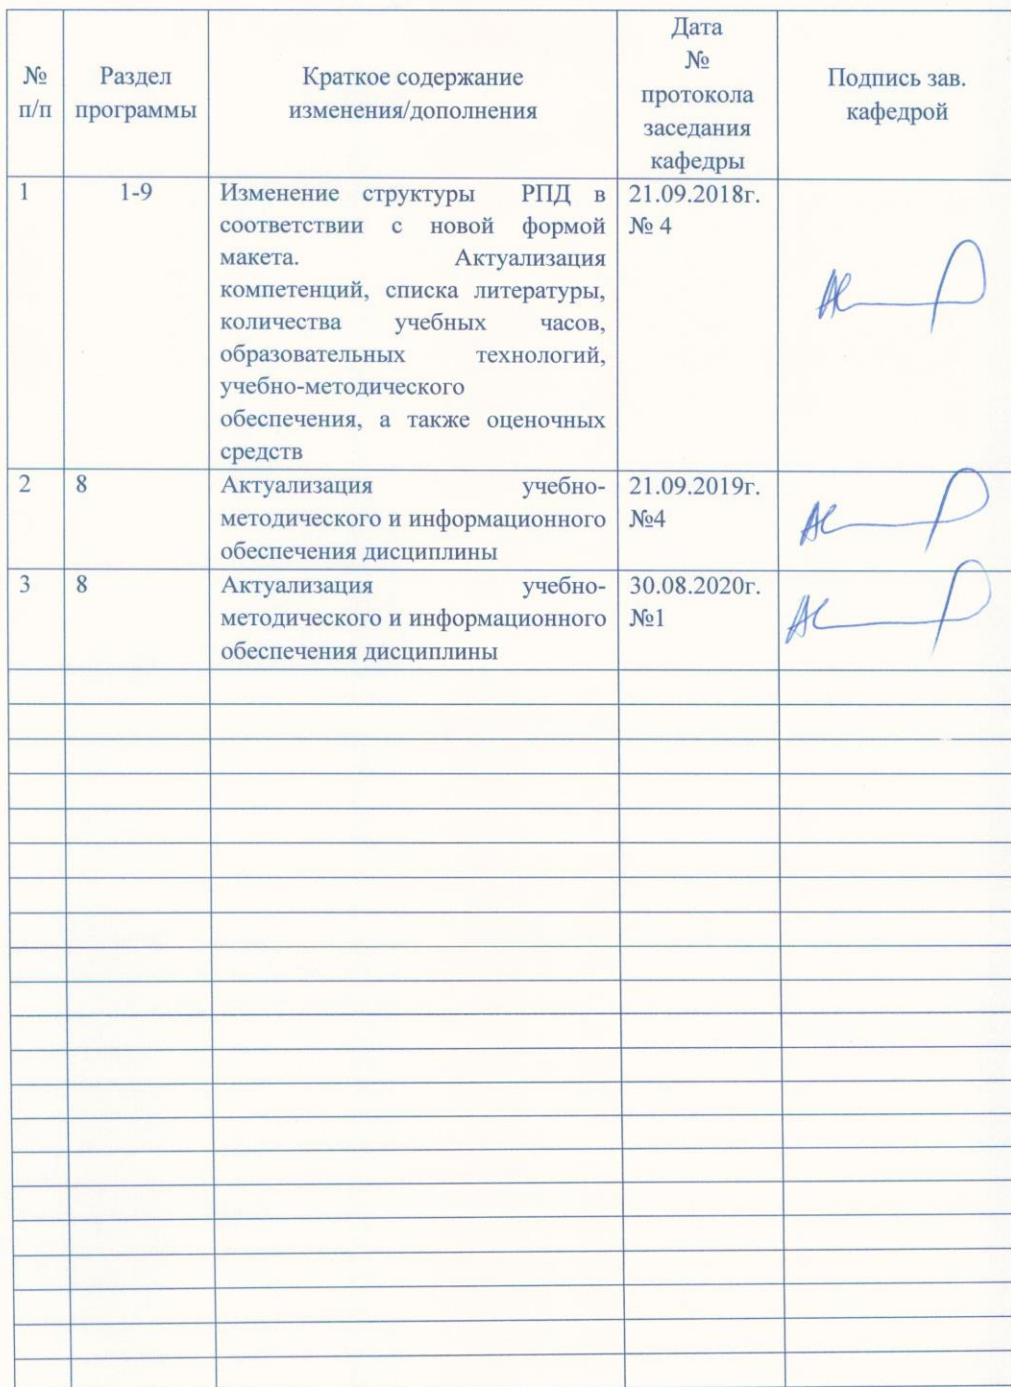 № п/п
Раздел программы
Краткое содержание изменения/дополнения
Дата
№
протокола
заседания
кафедры
Подпись зав. кафедрой
1
1-9
Изменение структуры РПД в
соответствии с новой формой
макета. Актуализация
компетенций, списка литературы,
количества учебных часов,
образовательных технологий,
учебно-методического
обеспечения, а также оценочных
средств
21.09.2018г.
№ 4
2
8
Актуализация учебно-
методического и информационного
обеспечения дисциплины
21.09.2019г.
№4
3
8
Актуализация учебно-
методического и информационного
обеспечения дисциплины
30.08.2020г.
№1